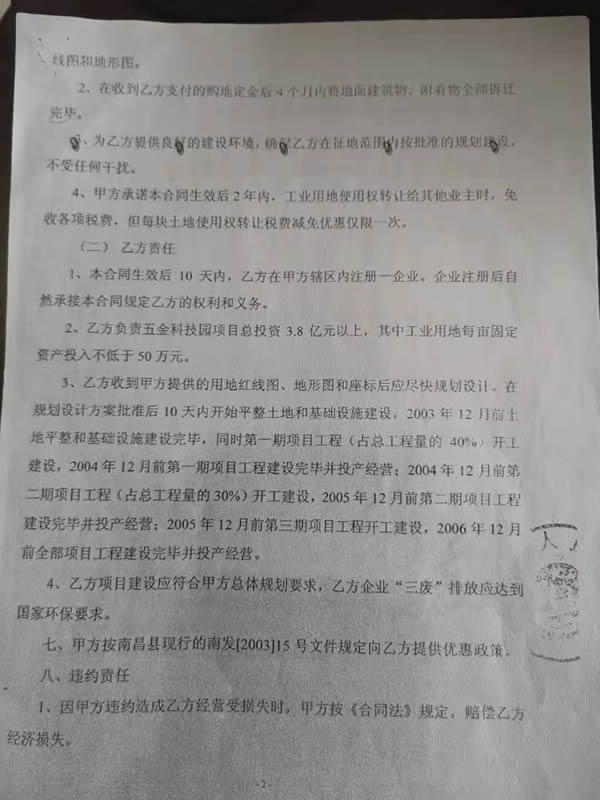 线图和地形图。
2、在收到乙方支付的购地定金后 4 个月内将地面建筑物、附着物全部拆迁
完毕。
3、为乙方提供良好的建设环境，确保乙方在征地范围内按批准的规划建设，
不受任何干扰。
4、甲方承诺本合同生效后 2 年内，工业用地使用权转让给其他业主时，免
收各项税费，但每块土地使用权转让税费减免优惠仅限一次。
（二） 乙方责任
1、本合同生效后 10 天内，乙方在甲方辖区内注册一企业。企业注册后自
然承接本合同规定乙方的权利和义务。
2、乙方负责五金科技园项目总投资 3.8 亿元以上，其中工业用地每亩固定
资产投入不低于 50 万元。
3、乙方收到甲方提供的用地红线图、地形图和座标后应尽快规划设计。在
规划设计方案批准后 10 天内开始平整土地和基础设施建设，2003 年 12 月前土
地平整和基础设施建设完毕，同时第一期项目工程（占总工程量的 40%）开工
建设，2004 年 12 月前第一期项目工程建设完毕并投产经营；2004 年 12 月前第
二期项目工程（占总工程量的30%）开工建设，2005 年 12 月前第二期项目工程
建设完毕并投产经营；2005 年 12 月前第三期项目工程开工建设，2006 年 12 月
前全部项目工程建设完毕并投产经营。
4、乙方项目建设应符合甲方总体规划要求，乙方企业“三废”排放应达到
国家环保要求。
七、甲方按南昌县现行的南发[2003]15 号文件规定向乙方提供优惠政策。
八、违约责任
1、因甲方违约造成乙方经营受损失时，甲方按《合同法》规定，赔偿乙方
经济损失。
-2-